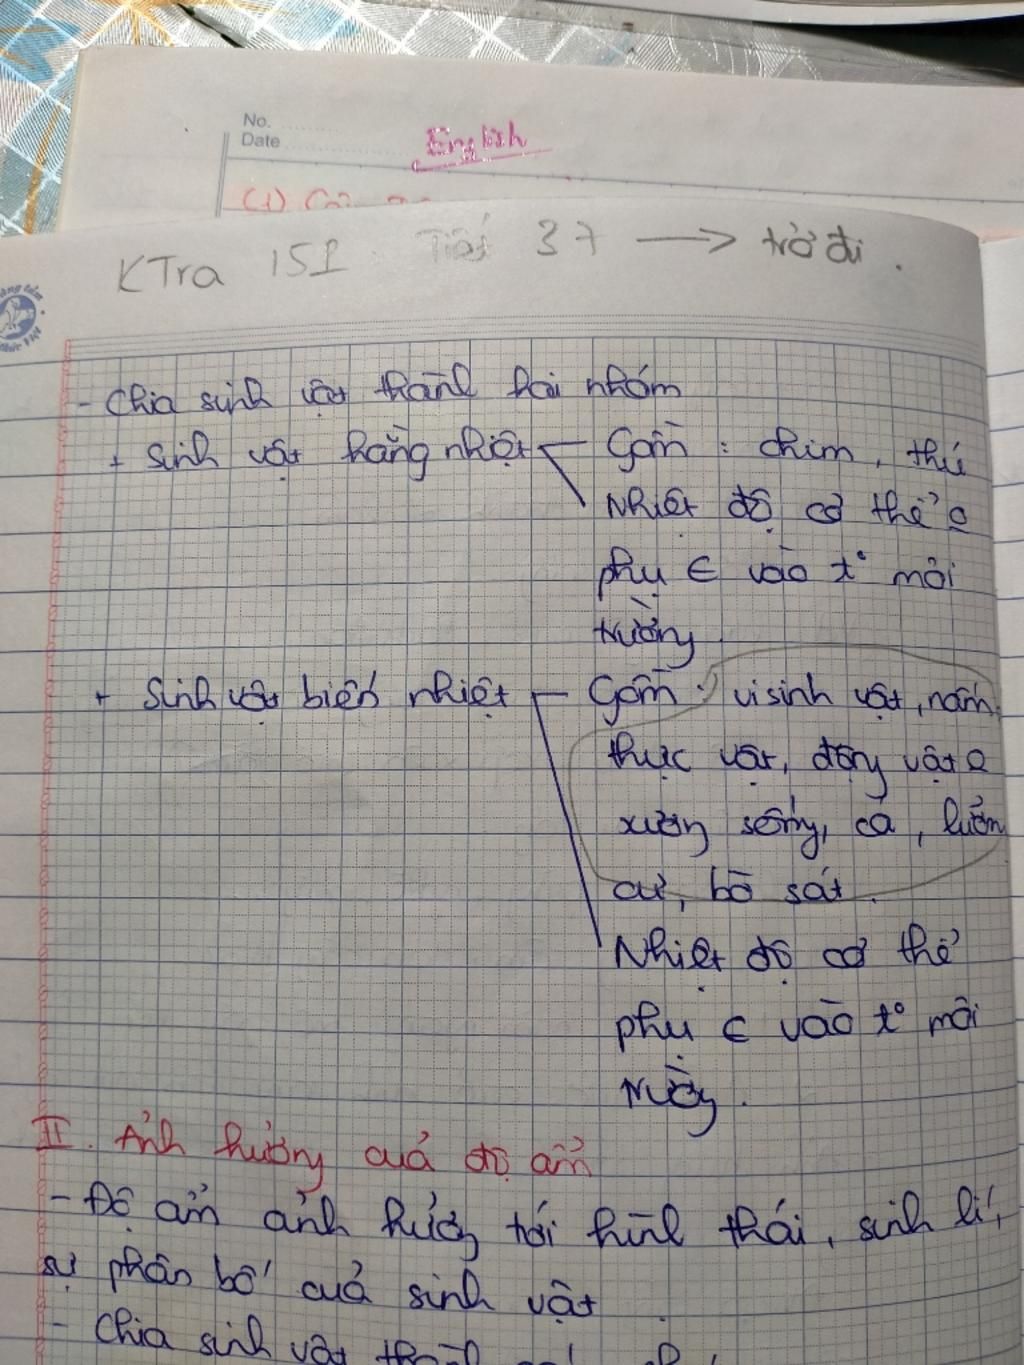 No.
Date
English
(1) Câu
KTra 15P Tiết 37 → trở đi.
- Chia sinh vật thành hai nhóm
+ Sinh vật hằng nhiệt - Gồm : chim, thú
Nhiệt độ cơ thể o
phụ ∈ vào t° môi
trường
+ Sinh vật biến nhiệt - Gồm : vi sinh vật, nấm,
thực vật, động vật o
xương sống, cá, lưỡn
cư, bò sát.
Nhiệt độ cơ thể
phụ ∈ vào t° môi
trường.
II. Ảnh hưởng của độ ẩm
- Độ ẩm ảnh hưởng tới hình thái, sinh lí,
sự phân bố của sinh vật
- Chia sinh vật thành